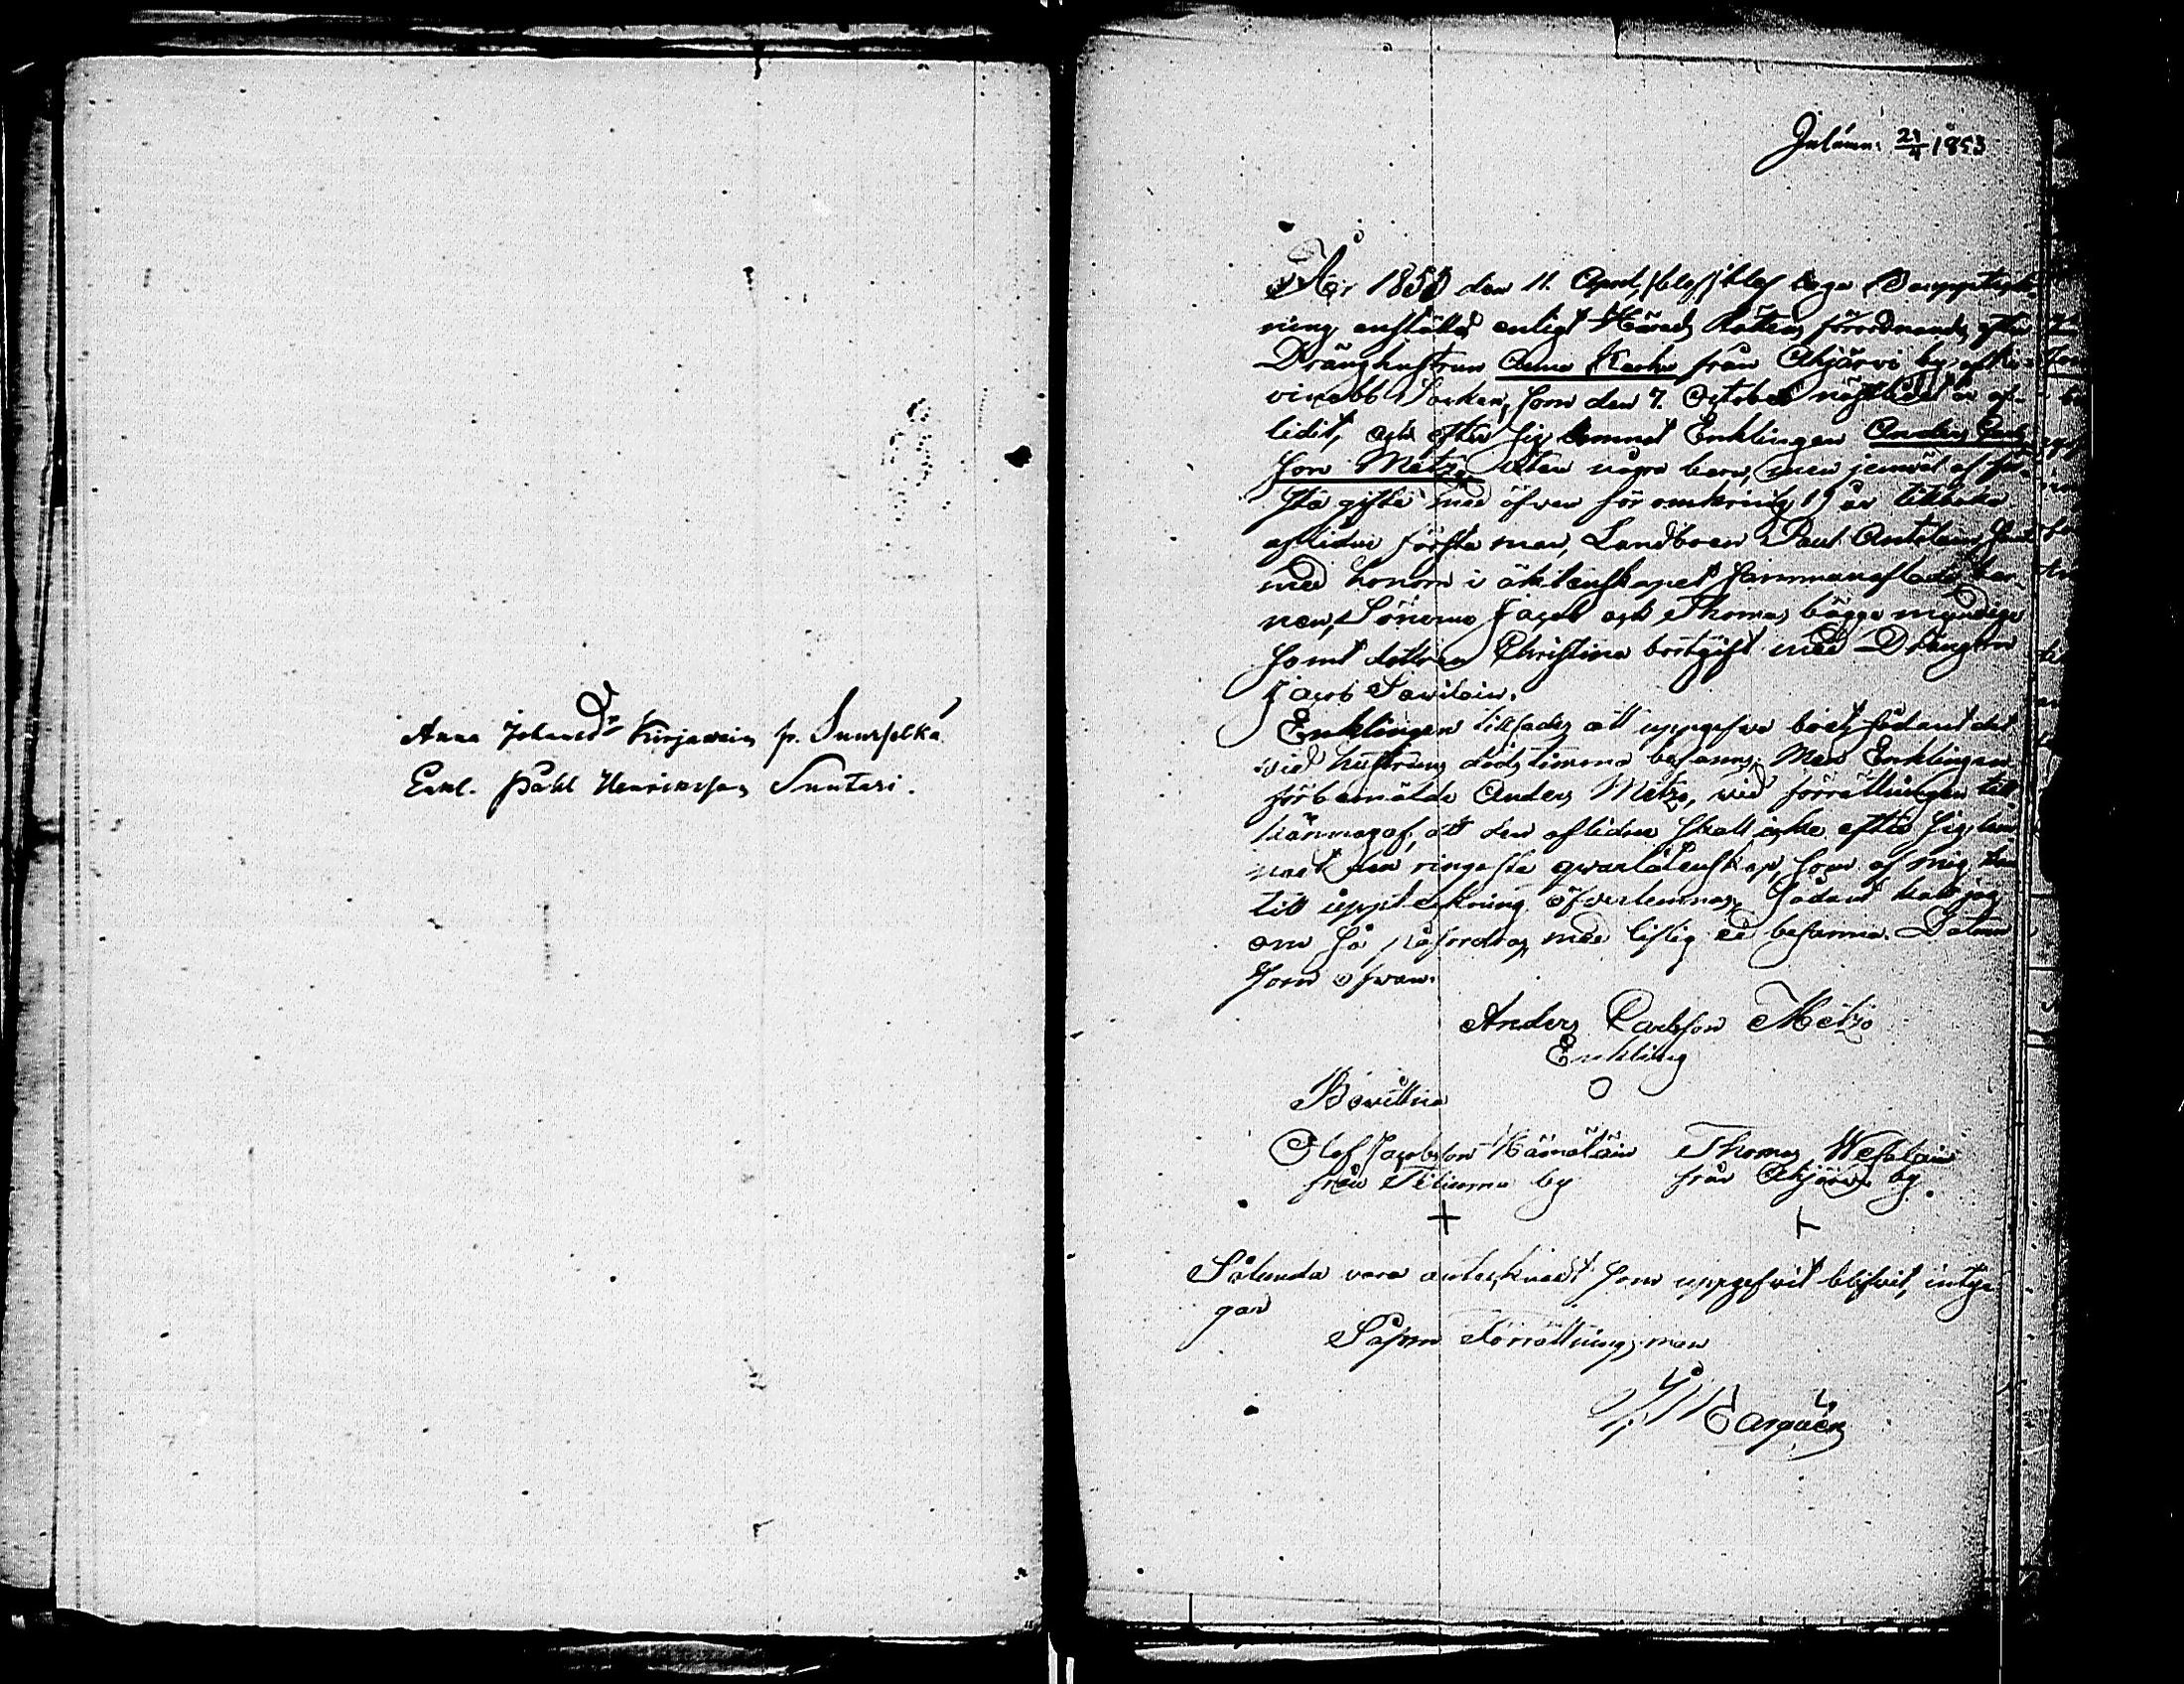 Anna Johansdr Kurjawain fr. Suurselkä
Enkl. Påhl Henricksson Suutari.
Inlämn: 21/4 1853
År 1853 den 11. April, blef laga Bouppteck-
ning anstäld enligt Härads Rättens förordnande efter
Dränghustrun Anna Karhu från Ahjärvi by af
Socken, som den 7. October nästledit år af-
lidit, och efter sig lemnat Enklingen Anders Carls-
son Metzo utan några barn, men jemväl af för-
sta gifte med öfven för omkring 19 år tillbaka
afliden första man, Landboen Paul Antilain
med honom i äktenskapet sammanaflade bar-
nen, Sönerna Jacob och Thomas bägge myndige
samt dottren Christina bortgift med Drängen
Jacob Sawilain.
Enklingen tillsades att uppgifva boet sådant det
vid hustruns dödstimma befanns. Men Enklingen
förbemälde Anders Metzo, vid förrättningen till-
kännagaf, att den aflidne skall icke efter sig lem-
nat den ringaste qvarlåtenskap, som af mig kan
till uppteckning öfverlemnas. Sådant kall jag
om så påfordras med liflig ed besanna. Datum
som ofvan.
Anders Carlsson Metzo
Enkling
O
Bevittna
Olof Jacobsson Hämäläin Thomas Wesalain
från by från Ahjärvi by.
+ +
Sålunda vara antecknadt som uppgifvit blifvit, intyga-
gar
Såsom Förrättningsman